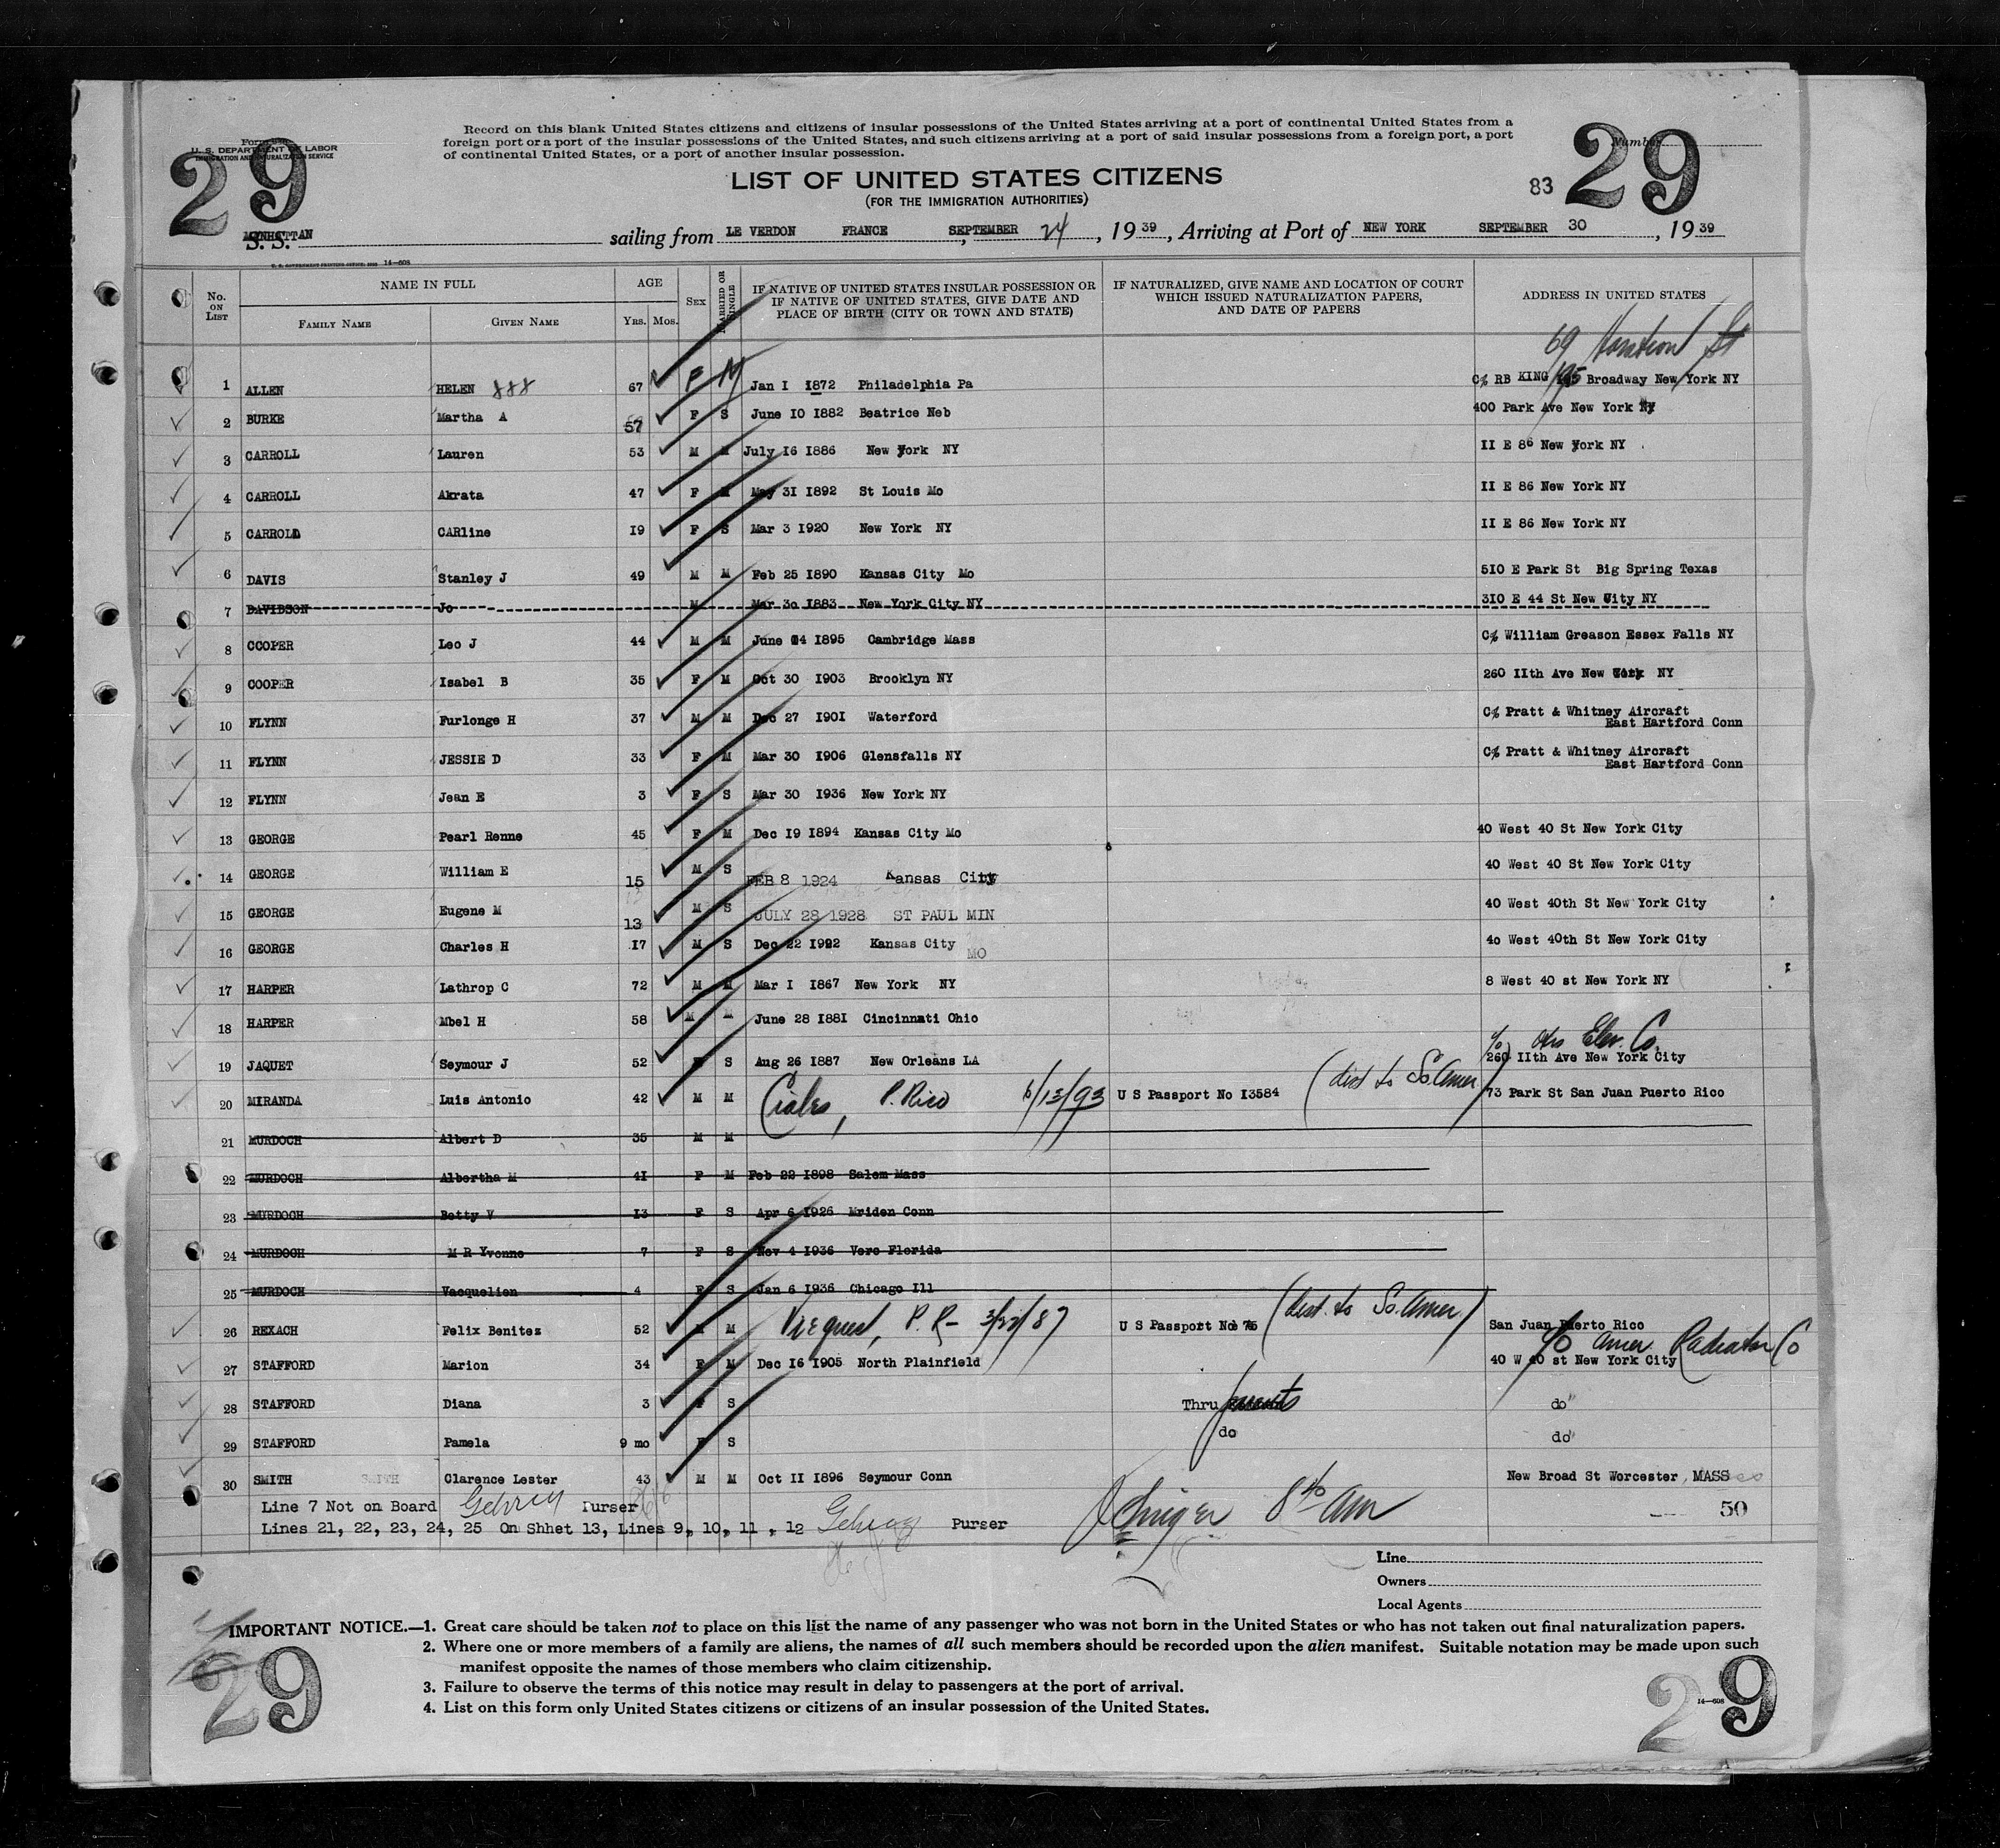 Record on this blank United States citizens and citizens of insular possessions of the United States arriving at a port of continental United States from a
foreign port or a port of the insular possessions of the United States, and such citizens arriving at a port of said insular possessions from a foreign port, a port
of continental United States, or a port of another insular possession.
U. S. DEPARTMENT OF LABOR
IMMIGRATION AND NATURALIZATION SERVICE
29
Number
29
LIST OF UNITED STATES CITIZENS
(FOR THE IMMIGRATION AUTHORITIES)
83
S. S. MANHATTAN sailing from LE VERDON FRANCE, SEPTEMBER 24, 1939, Arriving at Port of NEW YORK SEPTEMBER 30, 1939
14-608
No. ON LIST NAME IN FULL FAMILY NAME GIVEN NAME AGE YRS. MOS. SEX MARRIED OR SINGLE IF NATIVE OF UNITED STATES INSULAR POSSESSION OR IF NATIVE OF UNITED STATES, GIVE DATE AND PLACE OF BIRTH (CITY OR TOWN AND STATE) IF NATURALIZED, GIVE NAME AND LOCATION OF COURT WHICH ISSUED NATURALIZATION PAPERS, AND DATE OF PAPERS ADDRESS IN UNITED STATES
69 St
1 ALLEN HELEN 888 67 F M Jan I I872 Philadelphia Pa C/o RB KING 195 Broadway New York NY
2 BURKE Martha A 57 F S June IO I882 Beatrice Neb 400 Park Ave New York NY
3 CARROLL Lauren 53 M M July I6 I886 New York NY II E 86 New York NY
4 CARROLL Akrata 47 F M May 3I I892 St Louis Mo II E 86 New York NY
5 CARROLL CARline I9 F S Mar 3 I920 New York NY II E 86 New York NY
6 DAVIS Stanley J 49 M M Feb 25 I890 Kansas City Mo 5IO E Park St Big Spring Texas
7 DAVIDSON Jo M Mar 3o I883 New York City NY 3IO E 44 St New City NY
8 COOPER Leo J 44 M M June 4 I895 Cambridge Mass C/o William Greason Essex Falls NY
9 COOPER Isabel B 35 F M Oct 30 I903 Brooklyn NY 260 IIth Ave New NY
10 FLYNN Furlonge H 37 M M Dec 27 I90I Waterford C/o Pratt & Whitney Aircraft
East Hartford Conn
11 FLYNN JESSIE D 33 F M Mar 30 I906 Glensfalls NY C/o Pratt & Whitney Aircraft
East Hartford Conn
12 FLYNN Jean E 3 F S Mar 30 I936 New York NY
13 GEORGE Pearl Renne 45 F M Dec I9 I894 Kansas City Mo 40 West 40 St New York City
14 GEORGE William E 15 M S FEB 8 1924 Kansas City 40 West 40 St New York City
15 GEORGE Eugene M 13 M S JULY 28 1928 ST PAUL MIN 40 West 40th St New York City
16 GEORGE Charles H I7 M S Dec 22 I992 Kansas City MO 4o West 40th St New York City
17 HARPER Lathrop C 72 M M Mar I I867 New York NY 8 West 40 st New York NY
18 HARPER Mbel H 58 M M June 28 I88I Cincinnati Ohio
c/o Otis Elev. Co.
19 JAQUET Seymour J 52 S Aug 26 I887 New Orleans LA 260 IIth Ave New York City
20 MIRANDA Luis Antonio 42 M M Ciales, P. Rico 6/13/93 U S Passport No I3584 (dist to So. Amer) 73 Park St San Juan Puerto Rico
21 MURDOCH Albert D 35 M M
22 MURDOCH Albertha M 4I F M Feb 22 I898 Salem Mass
23 MURDOCH Betty V I3 F S Apr 6 I926 Mriden Conn
24 MURDOCH M R Yvonne 7 F S Nov 4 I936 Vero Florida
25 MURDOCH Vacquelien 4 F S Jan 6 I936 Chicago Ill
26 REXACH Felix Benitez 52 M Vieques, P. R- 3/27/87 U S Passport No (dist. to So. Amer) San Juan Puerto Rico
c/o Amer. Radiator Co
27 STAFFORD Marion 34 F M Dec I6 I905 North Plainfield 40 W 40 st New York City
28 STAFFORD Diana 3 F S Thru parents do"
29 STAFFORD Pamela 9 mo F S do do"
30 SMITH Clarence Lester 43 M M Oct II I896 Seymour Conn New Broad St Worcester, MASS
Line 7 Not on Board Gehring Purser
Lines 21, 22, 23, 24, 25 On Shhet 13, Lines 9, 10, 11, 12 Gehring Purser
8 40 am
50
Line
Owners
Local Agents
IMPORTANT NOTICE.—1. Great care should be taken not to place on this list the name of any passenger who was not born in the United States or who has not taken out final naturalization papers.
2. Where one or more members of a family are aliens, the names of all such members should be recorded upon the alien manifest. Suitable notation may be made upon such
manifest opposite the names of those members who claim citizenship.
3. Failure to observe the terms of this notice may result in delay to passengers at the port of arrival.
4. List on this form only United States citizens or citizens of an insular possession of the United States.
29
14-608
29